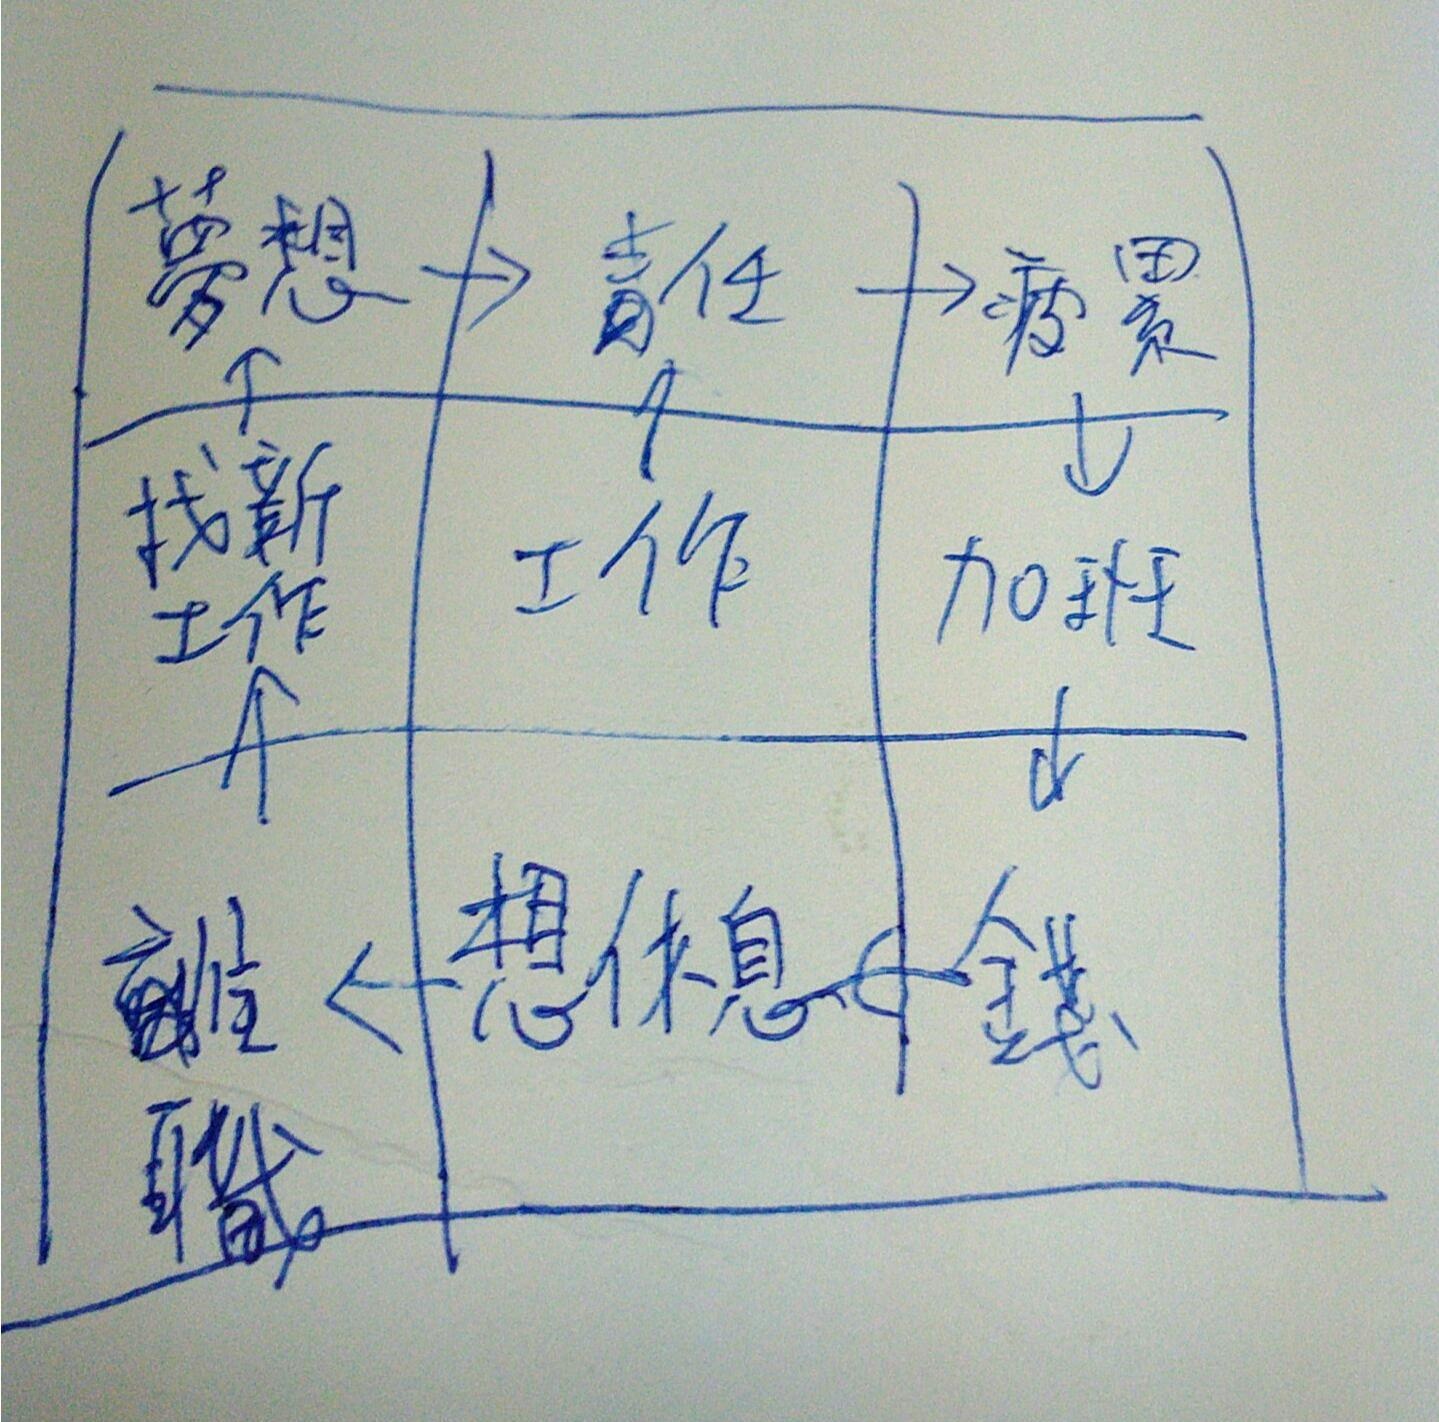 夢想 → 責任 → 疲累
↑ ↑ ↓
找新
工作
工作
加班
↑ ↓
離 ← 想休息 ← 錢
職